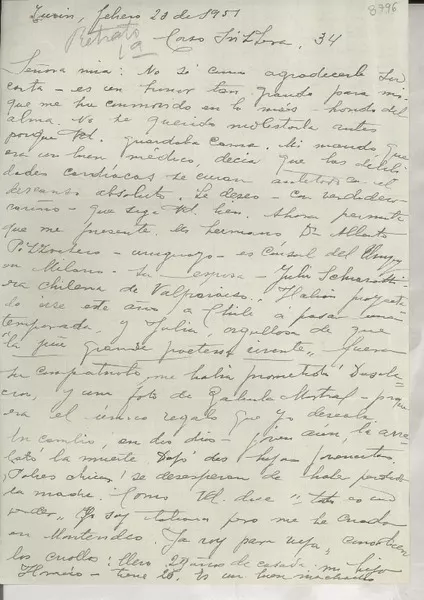 8796
Turin, febrero 20 de 1951
Retrato Corso Svizzera, 34
Señora mia: No sé como agradecerle su
carta - es un honor tan grande para mi
que me ha conmovido en lo más hondo del
alma. No he querido molestarla antes
porque Ud. guardaba cama. Mi marido que
era un buen médico, decía que las debili
dades cardíacas se curan con el
descanso absoluto. Le deseo - con verdadero
cariño - que siga Ud. bien. Ahora permita
que me presente. Un hermano Dr Alberto
- uruguayo - es Cónsul del Uruguay
en Milano. Su esposa - Julia
era chilena de Valparaiso. Habían proyecta
do irse este año a Chile a pasar una
temporada, y Julia, orgullosa de que
"la più grande poetessa vivente" fuera
su compatriota, me había prometido
y una foto de Gabriela Mistral - porque
era el único regalo que yo deseaba.
En cambio, en dos días - joven aún, la arre
bató la muerte. Dejó dos hijos
Pobres chicos, se desesperan de haber perdido
la madre. Como Ud. dice "
" Yo soy italiana pero me he criado
en Montevideo. Ya voy para vieja, conocí bien
los criollos: llevo 29 años de casada. Mi hijo
Homero - tiene 20. Es un buen muchacho